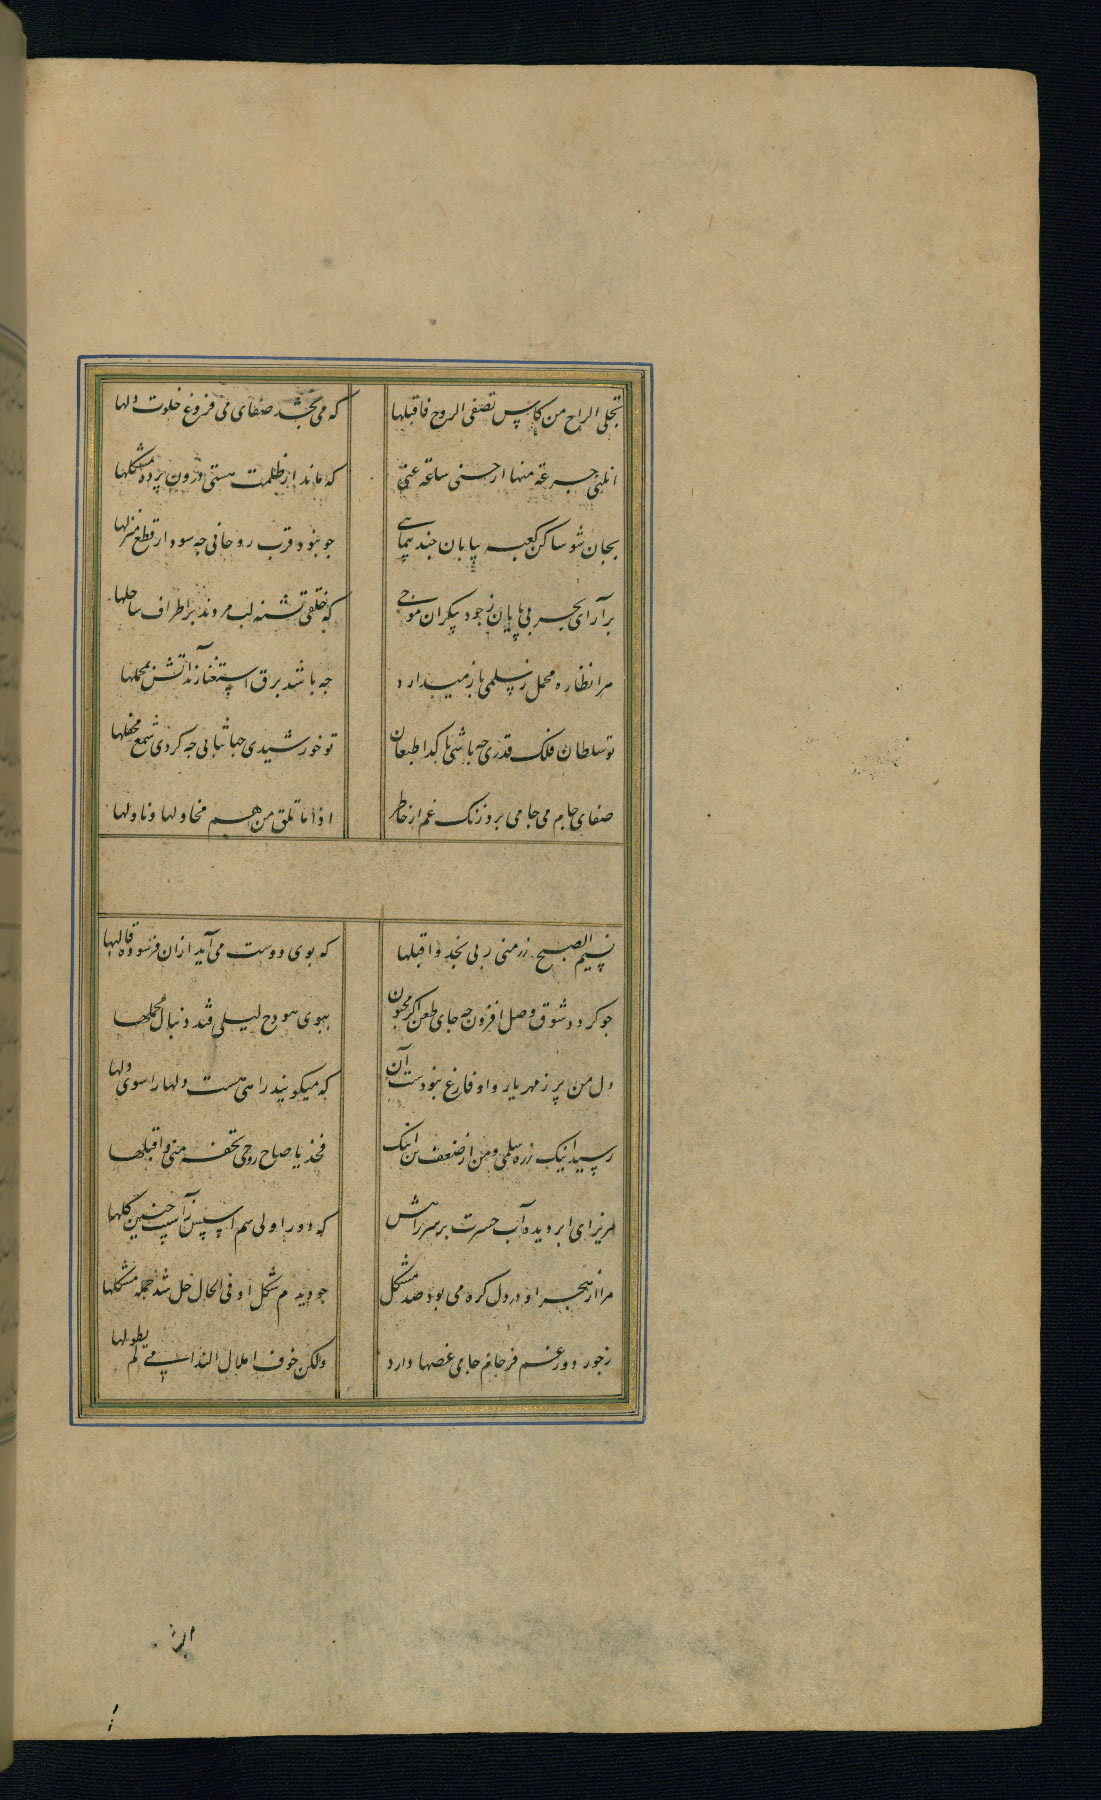 تجلی الراح من کاس تصفی الروح فاقبلها که می بخشد صفای می فروغ خلوت دلها
انلنی جرعة منها ارحنی ساعة عنی که ماند از ظلمت هستی درون پرده مشکلها
بجان شو ساکن کعبه بیابان چند پیمایی چو نبود قرب روحانی چه سود از قطع منزلها
برآر ای بحر بی پایان ز جود بیکران موجی که خلقی تشنه لب مردند بر اطراف ساحلها
مرا نظاره محمل ز سلمی باز میدارد چه باشد برق استغنا زند آتش بمحملها
تو سلطان فلک قدری چه باشی با گدا طبعان تو خورشیدی جهانتابی چه گردی شمع محفلها
صفای جام می جامی برد زنگ غم از خاطر اذا ما تلق من هم فحاولها وناولها
نسیم الصبح زر منی ربی نجد و اقبلها که بوی دوست می آید ازان فرسوده قالبها
چو گردد شوق وصل افزون چه جای طعن اگر مجنون ببوی هودج لیلی فتد دنبال محملها
دل من پر ز مهر یار و او فارغ نبودست آن که میگویند راهی هست دلها را سوی دلها
رسید اینک ز ره سلمی و من از ضعف تن اینک فخذ یا صاح روحی تحفة منی و اقبلها
مریز ای ابر دیده آب حسرت بر سر راهش که دور اولی سم اسپش ز آسیب چنین گلها
مرا از هجر او در دل گره می بود صد مشکل چو دیدم شکل او فی الحال حل شد جمله مشکلها
ز جور دور غم فرجام جامی غصها دارد ولکن خوف املال الندامی لم یطولها